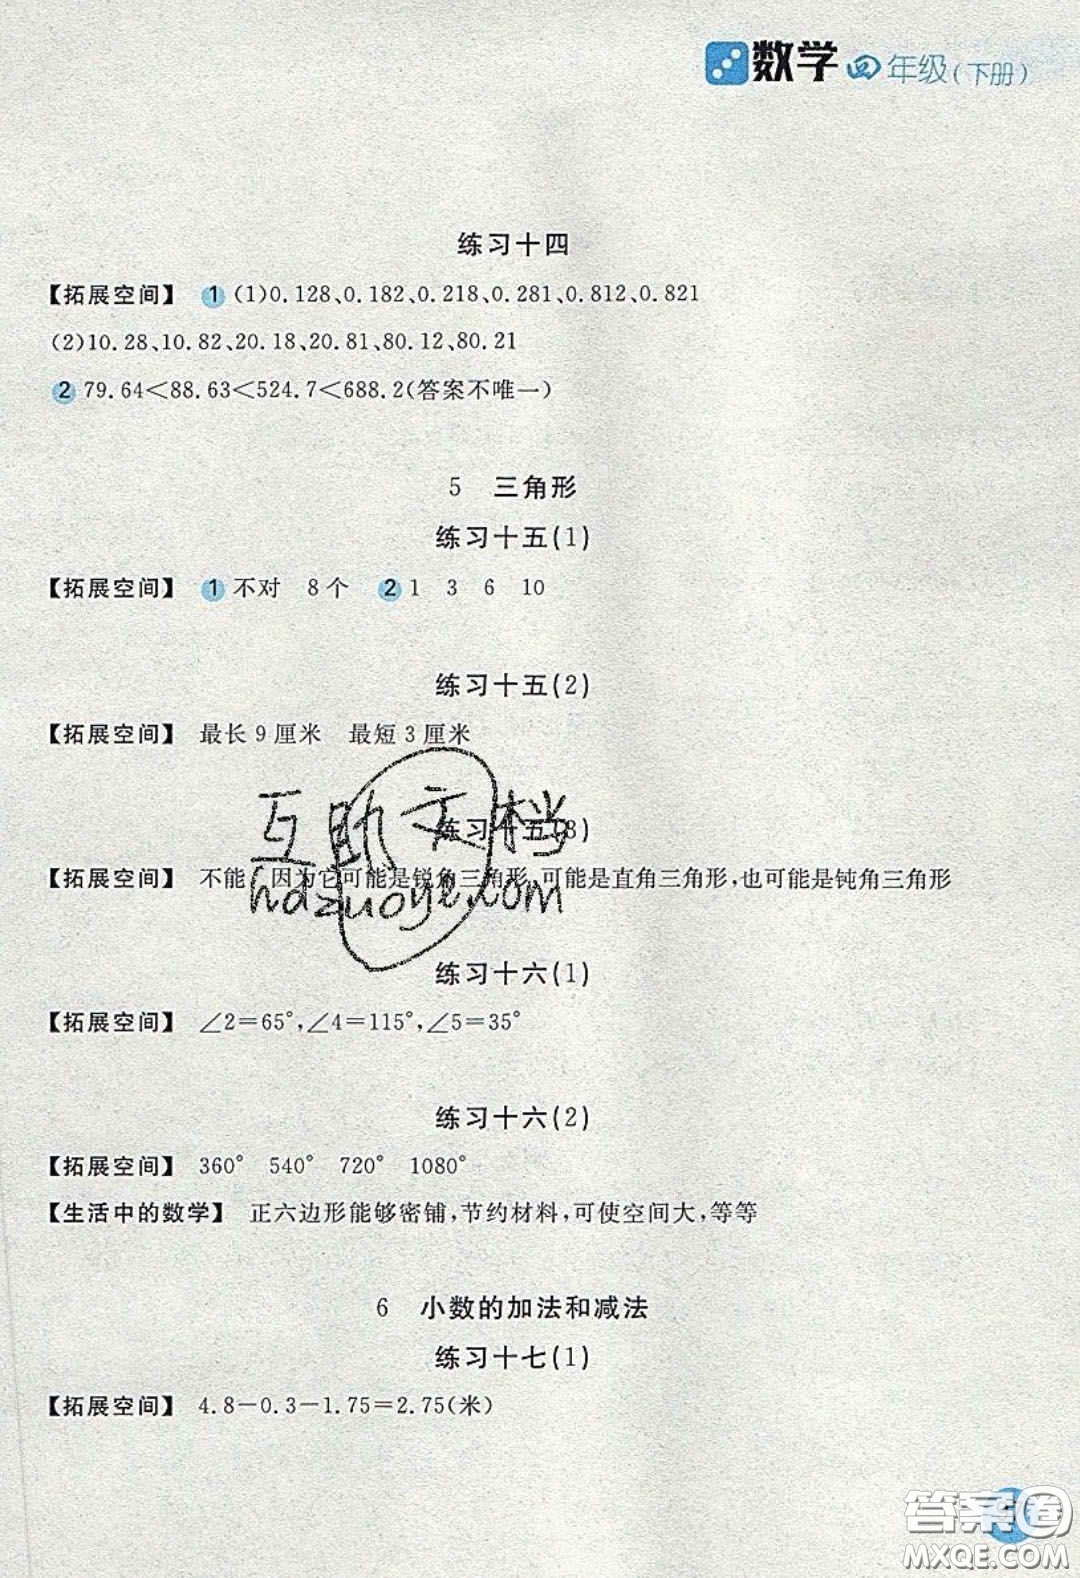 数学 四年级(下册)
练习十四
【拓展空间】 1 (1)0.128、0.182、0.218、0.281、0.812、0.821
(2)10.28、10.82、20.18、20.81、80.12、80.21
2 79.64<88.63<524.7<688.2(答案不唯一)
5 三角形
练习十五(1)
【拓展空间】 1 不对 8个 2 1 3 6 10
练习十五(2)
【拓展空间】 最长9厘米 最短3厘米
互助文档
练习十五(3)
【拓展空间】 不能,因为它可能是锐角三角形,可能是直角三角形,也可能是钝角三角形
hdzuoye.com
练习十六(1)
【拓展空间】 ∠2=65°,∠4=115°,∠5=35°
练习十六(2)
【拓展空间】 360° 540° 720° 1080°
【生活中的数学】 正六边形能够密铺,节约材料,可使空间大,等等
6 小数的加法和减法
练习十七(1)
【拓展空间】 4.8-0.3-1.75=2.75(米)
答案圈
MXQE.COM